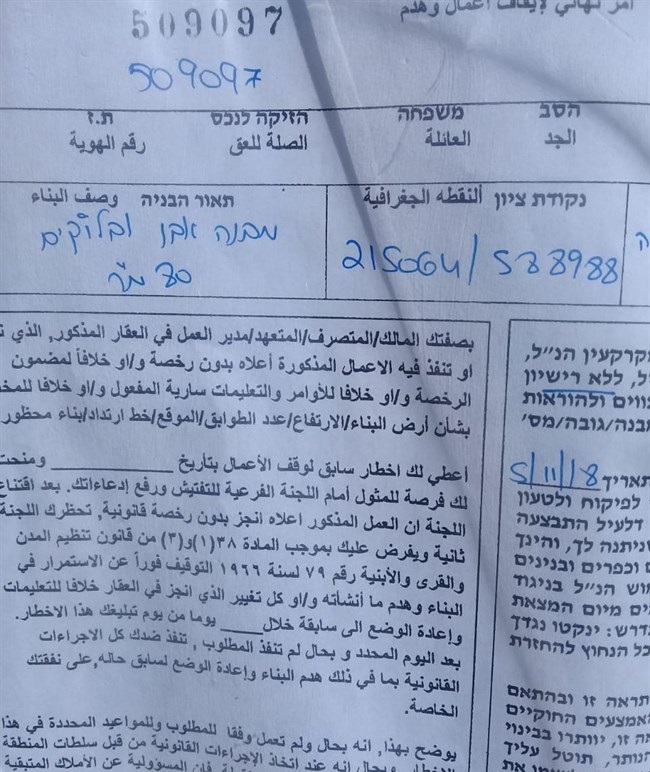 امر نهائي لإيقاف أعمال وهدم
509097
509097
הסב משפחה הזיקה לנכס ת.ז
الجد العائلة الصلة للعق رقم الهوية
נקודת ציון ألنقطه الجغرافية
215064/538988
תאור הבניה وصف البناء
מבנה אבן ובלוקים
בصفتك المالك/المتصرف/المتعهد/مدير العمل في العقار المذكور, الذي
او تنفذ فيه الاعمال المذكورة أعلاه بدون رخصة و/او خلافاً لمضمون
الرخصة و/او خلافا للأوامر والتعليمات سارية المفعول و/او خلافا
بشأن أرض البناء/الارتفاع/عدد الطوابق/الموقع/خط ارتداد/بناء محظور
أعطي لك اخطار سابق لوقف الأعمال بتأريخ ومنحت
لك فرصة للمثول أمام اللجنة الفرعية للتفتيش ورفع إدعاءاتك. بعد اقتناع
اللجنة ان العمل المذكور اعلاه انجز بدون رخصة قانونية, تحظرك اللجنة
ثانية ويفرض عليك بموجب المادة ٣٨(١)و(٣) من قانون تنظيم المدن
والقرى والأبنية رقم ٧٩ لسنة ١٩٦٦ التوقيف فوراً عن الاستمرار في
البناء وهدم ما أنشأته و/او كل تغيير الذي انجز في العقار خلافا للتعليمات
وإعادة الوضع الى سابقة خلال____ يوما من يوم تبليغك هذا الاخطار.
بعد اليوم المحدد و بحال لم تنفذ المطلوب , تنفذ ضدك كل الاجراءات
القانونية بما في ذلك هدم البناء وإعادة الوضع لسابق حاله,على نفقتك
الخاصة.
يوضح بهذا, انه بحال ولم تعمل وفقا للمطلوب وللمواعيد المحددة في هذا
وبحال انه عند اتخاذ الإجراءات القانونية من قبل سلطات المنطقة
فان المسؤولية عن الأملاك المتبقية
מקרקעין הנ"ל,
ללא רישיון
ולהוראות
מבנה/גובה/מס'
תאריך 5/11/18
לפיקוח ולטעון
דלעיל התבצעה
שניתנה לך, והינך
וכפרים ובנינים
הנ"ל בניגוד
מיום המצאת
ינקטו נגדך
הנחוץ להחזרת
התראה זו ובהתאם
האמצעים החוקיים
זו, יוותרו בבינוי
תוטל עליך